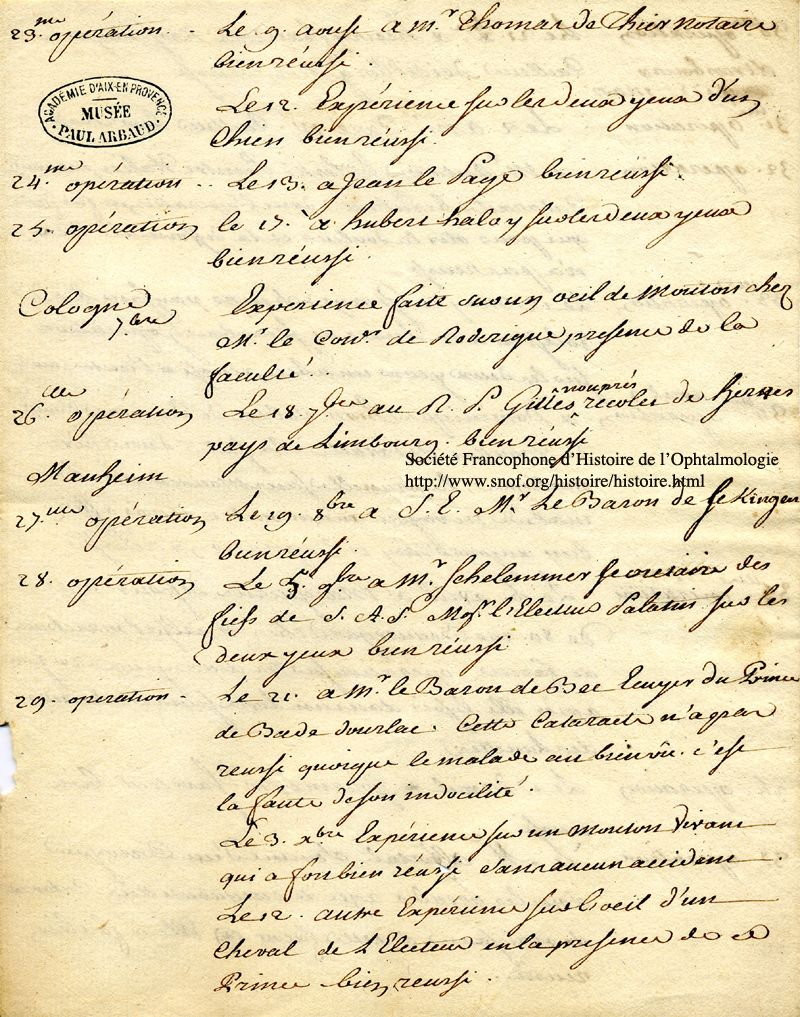 23.me opération. Le 9. aoust a mr Thomas de Thier notaire
bien réussi.
ACADÉMIE D'AIX-EN-PROVENCE
MUSÉE
PAUL ARBAUD
Le 12. Expérience sur les deux yeux d'un
Chien bien réussi.
24.me opération .. Le 13. a Jean le Page bien réussi.
25. opération le 17. a hubert haloy sur les deux yeux
bien réussi.
Cologne Experience faite sur un oeil de Mouton chez
7bre Mr. le de Roderique presence de la
faculté.
26. opération Le 18. 7bre au R. P. Gilles, recolet de
pays de Limbourg. bien réussi
Société Francophone d'Histoire de l'Ophtalmologie
http://www.snof.org/histoire/histoire.html
Manheim
27.me opération Le 19. 8bre a S. E. Mr. Le Baron de Sekingen
bien réussi.
28. opération Le 5. 9bre a Mr. Schelemmer Secretaire des
fiefs de S. A. S. Msgr. l'Electeur Palatin sur les
deux yeux bien réussi
29. operation - Le 21. a Mr. le Baron de Bec Ecuyer du Prince
de Bade dourlac. Cette Cataracte n'a pas
reussi quoique le malade ait bien vû. c'est
la faute de son indocilité.
Le 3. xbre Expérience sur un mouton vivant
qui a fort bien réussi sans aucun accident.
Le 12. autre Expérience sur l'oeil d'un
Cheval de L'Electeur en la presence de ce
Prince bien reussi.